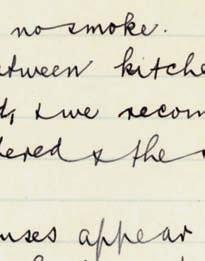 no smoke.
etween kitche
d, & we recom
dered & the
uses appear